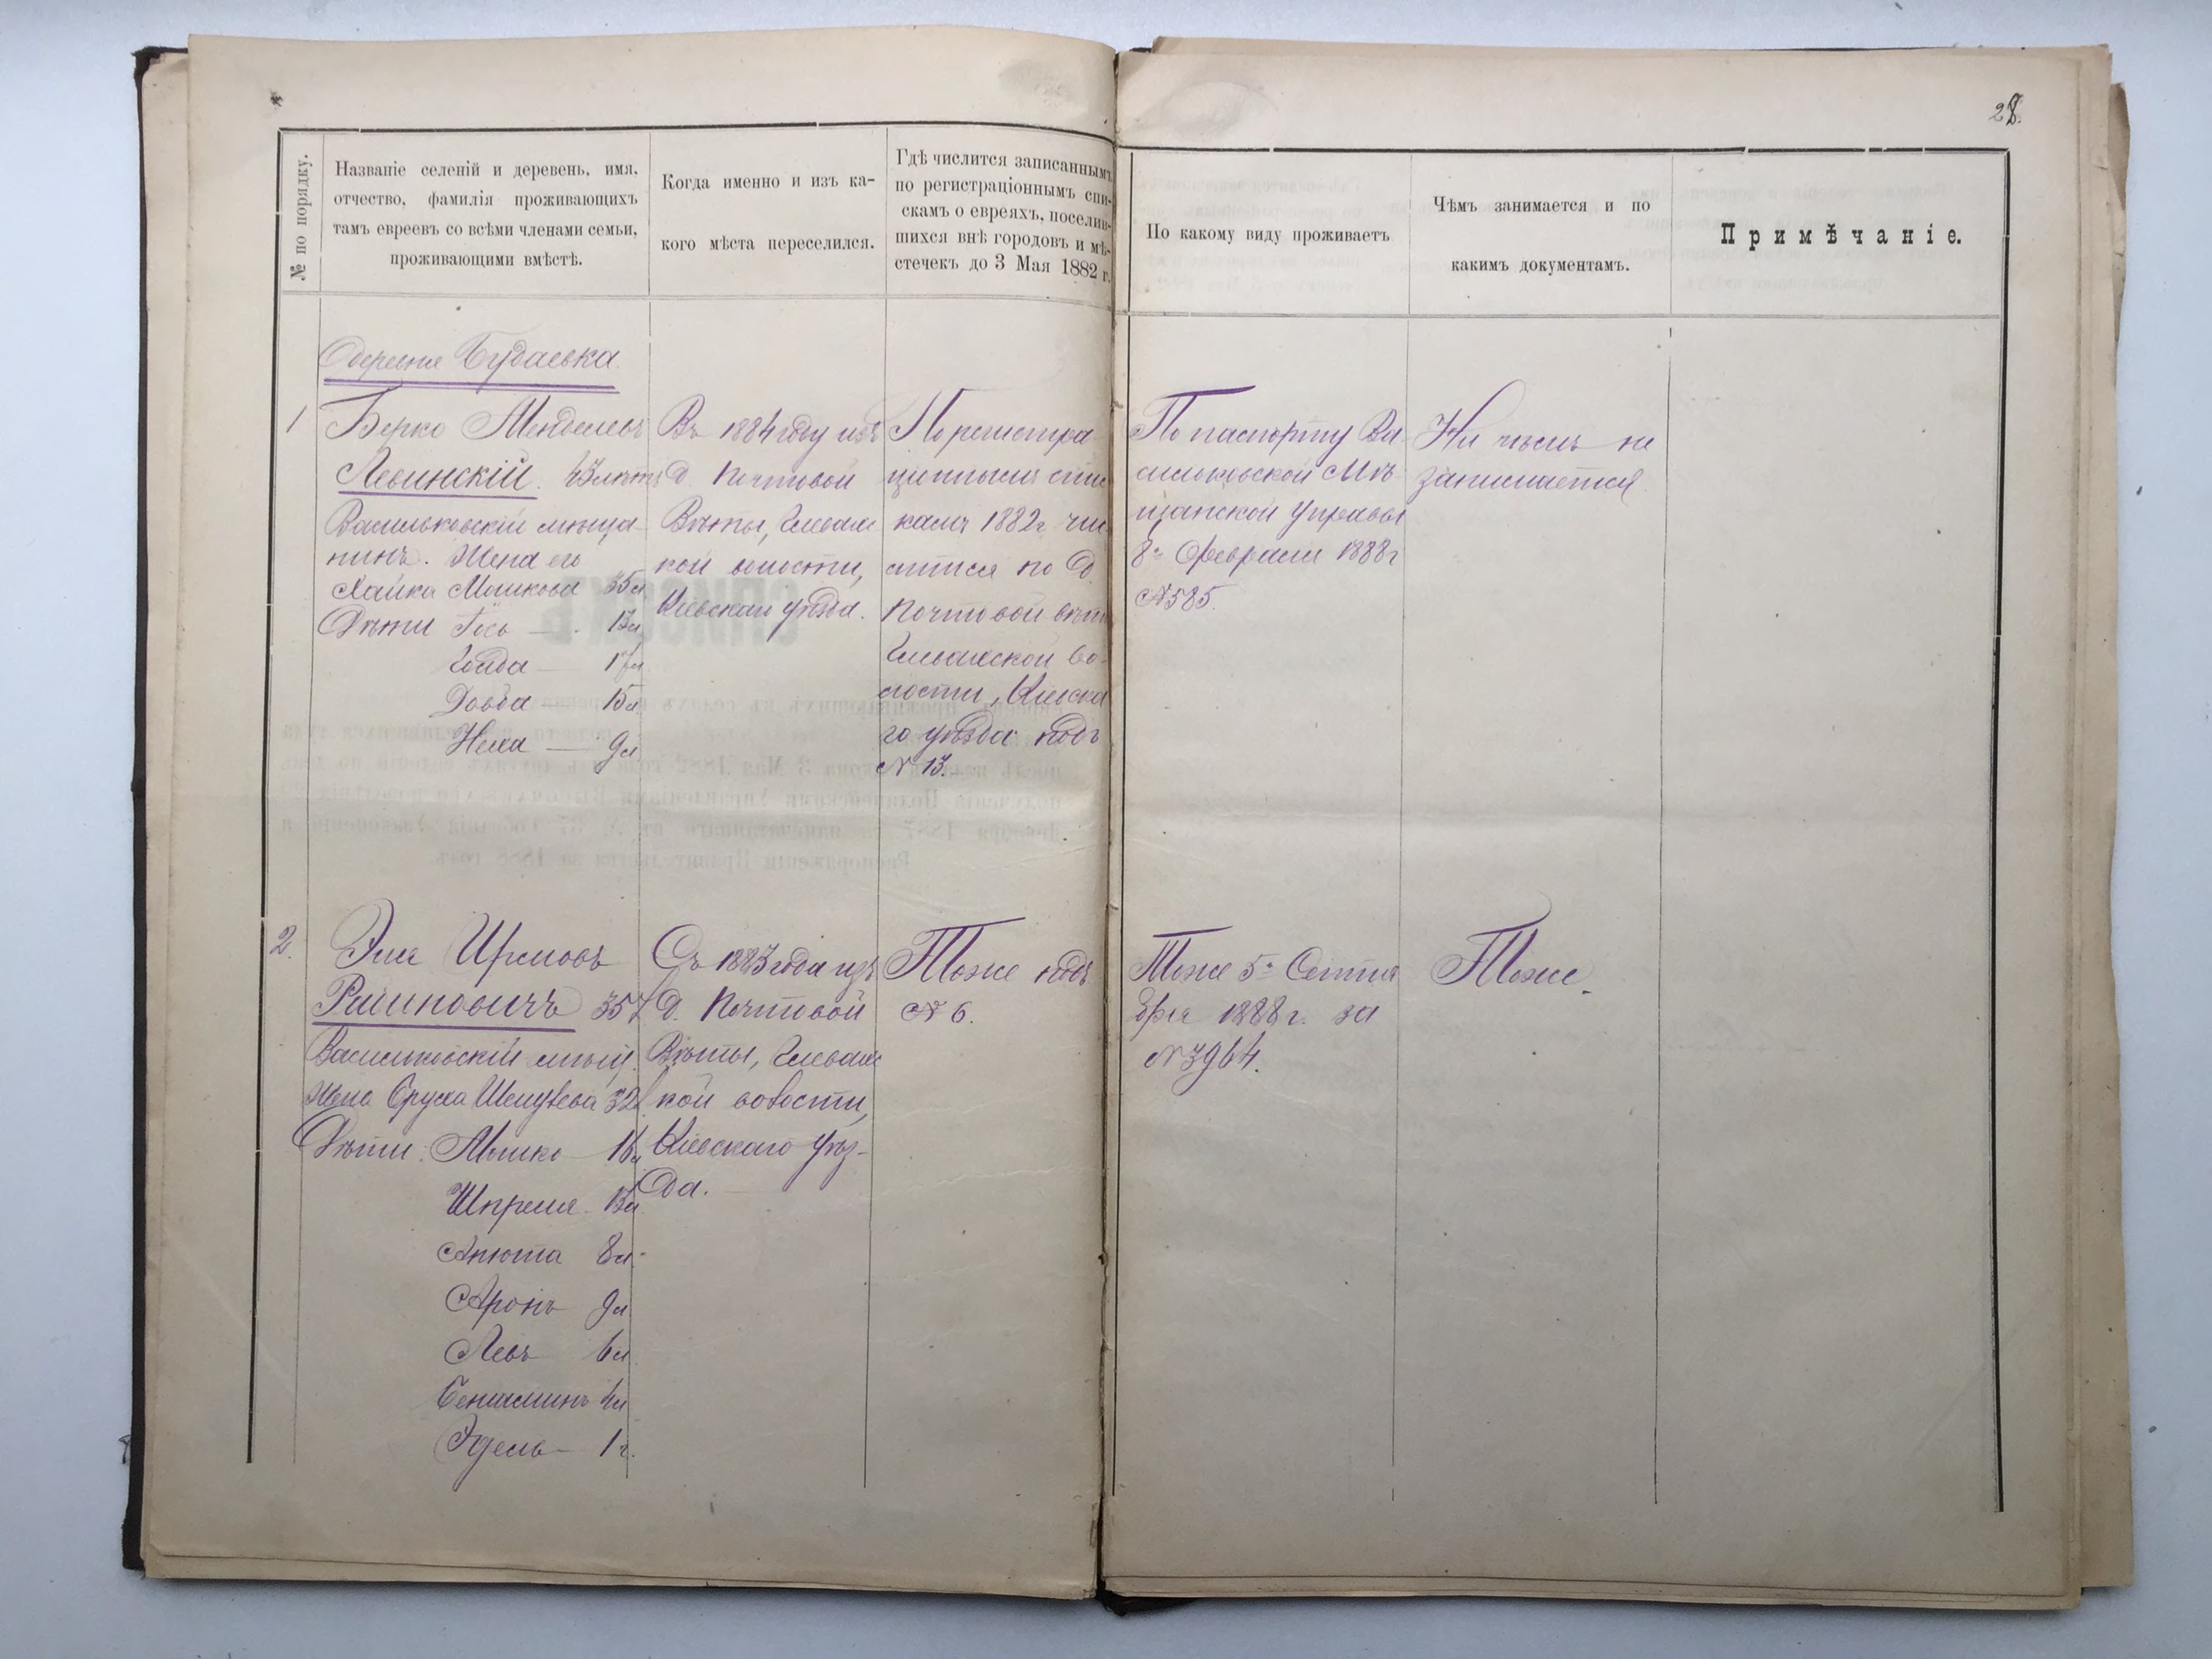 28.
№ по порядку.
Названіе селеній и деревень, имя,
отчество, фамилія проживающихъ
тамъ евреевъ со всѣми членами семьи,
проживающими вмѣстѣ.
Когда именно и изъ ка-
кого мѣста переселился.
Гдѣ числится записаннымъ
по регистраціоннымъ спи-
скамъ о евреяхъ, поселив-
шихся внѣ городовъ и мѣ-
стечекъ до 3 Мая 1882 г.
По какому виду проживаетъ
Чѣмъ занимается и по
какимъ документамъ.
Примѣчаніе.
Деревня Будаевка
1
Берко Менделевъ
Левинскій. лѣтъ
Васильковскій мѣща-
нинъ. Жена его
Хайка Мошкова 35 л
Дѣти
Голда — 17 л
Довба — 15 л
Неха — 9 л
Въ 1884 году изъ
д. Почтовой
Вѣты, Глевахс
кой волости,
Кіевскаго уѣзда.
По регистра-
ціоннымъ спис
камъ 1882 г чис
лится по д.
Почтовой Вѣт
Глевахской во-
лости, Кіевска
го уѣзда подъ
№ 13.
По паспорту Ва-
сильковской Мѣ-
щанской Управы
8 Февраля 1888 г
№ 585.
Ни чѣмъ не
занимается
2.
Эля Ирмовъ
357
Васильковскій мѣщ.
Жена Фрума 32 л.
Дѣти: Мошко 16 л
Шпреня 13 л
Анюта 8 л.
Аронъ 9 л
Левъ 6 л
Бениаминъ 4 л
1 г.
Съ 1883 года изъ
д. Почтовой
Вѣты, Глевахс
кой волости,
Кіевскаго уѣз-
да.
Тоже подъ
№ 6.
Тоже 5 Сентя
бря 1888 г. за
№ 3964.
Тоже.